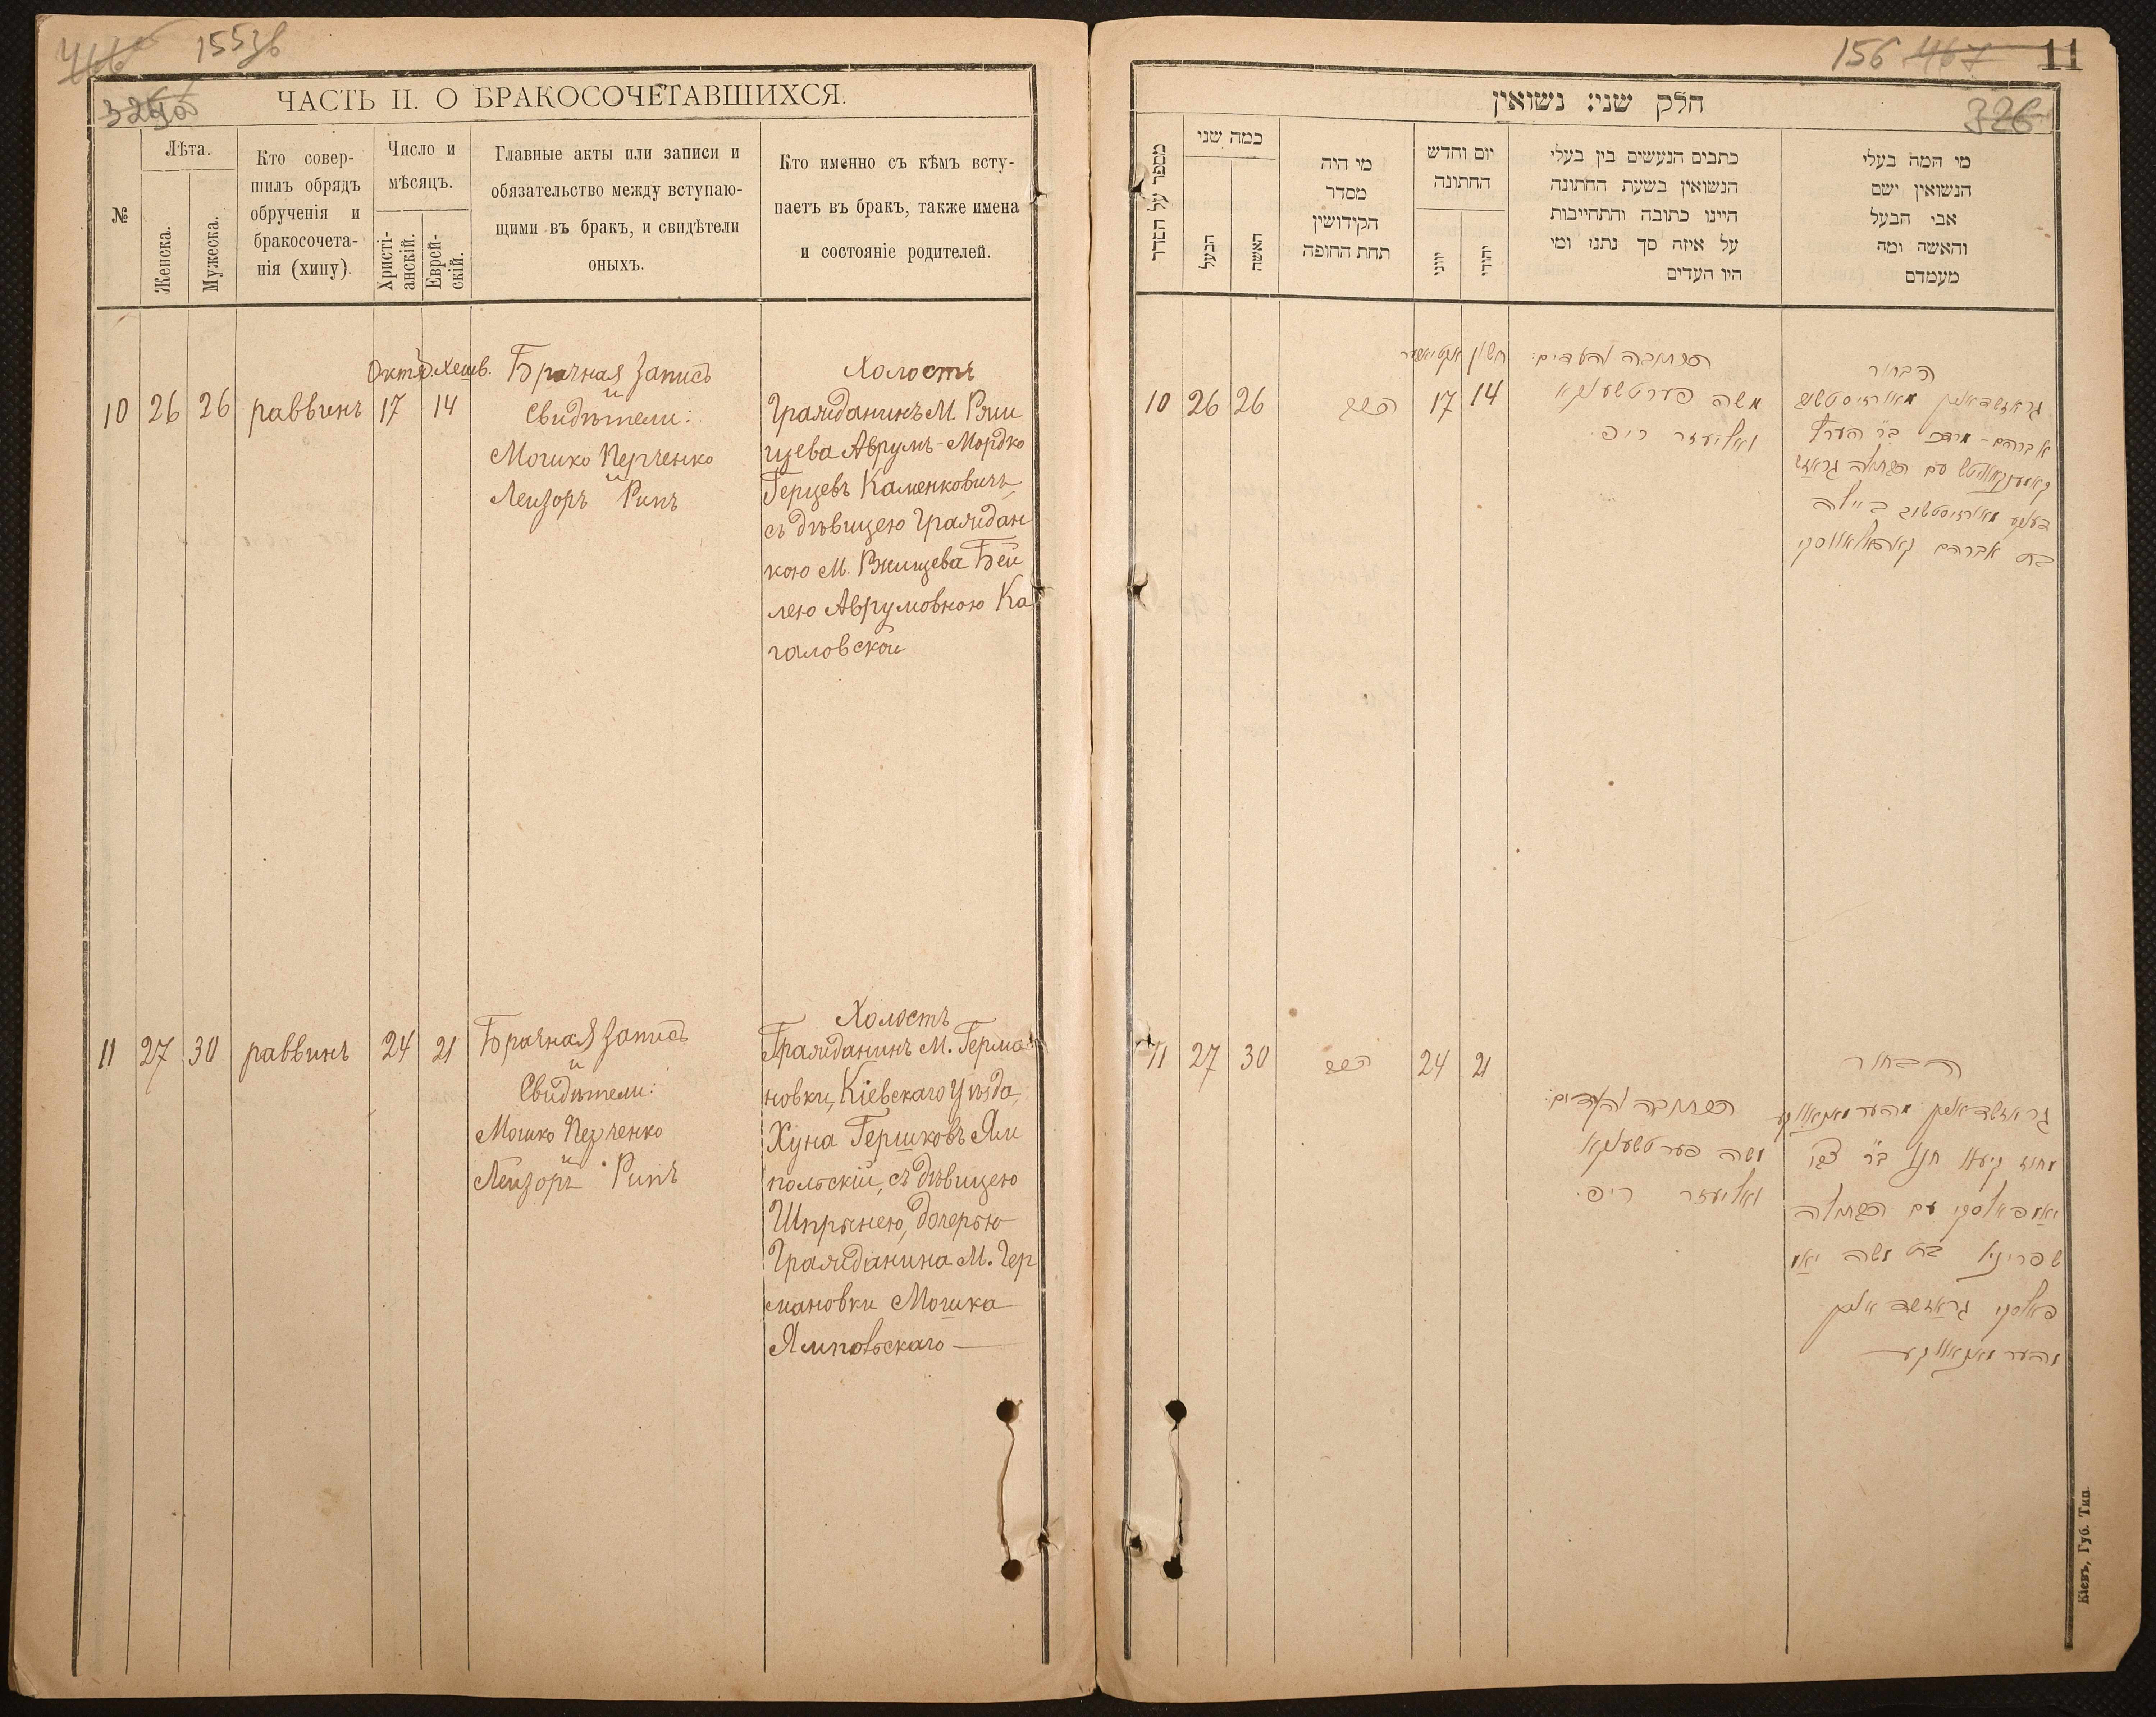 466 155зв
329об
ЧАСТЬ II. О БРАКОСОЧЕТАВШИХСЯ.
№
Лѣта.
Женска.
Мужеска.
Кто совер-
шилъ обрядъ
обрученія и
бракосочета-
нія (хипу).
Число и
мѣсяцъ.
Христі-
анскій.
Еврей-
скій.
Главные акты или записи и
обязательство между вступаю-
щими въ бракъ, и свидѣтели
оныхъ.
Кто именно съ кѣмъ всту-
паетъ въ бракъ, также имена
и состояніе родителей.
Октяб. Хешв.
10 26 26 раввинъ 17 14
Брачная Запись
и
Свидѣтели:
Мошко Перченко
и
Лейзоръ Рипъ
Холостъ
Гражданинъ М. Ржи
щева Аврумъ-Мордко
Герцевъ Каменковичъ,
съ дѣвицею Граждан
кою М. Ржищева Бей
лею Аврумовною Ка
галовской
11 27 30 раввинъ 24 21
Брачная Запись
и
Свидѣтели:
Мошко Перченко
и
Лейзоръ Рипъ
Холостъ
Гражданинъ М. Герма
новки, Кіевскаго Уѣзда,
Хуна Гершковъ Ям
польскій, съ дѣвицею
Шпрынею, дочерью
Гражданина М. Гер
мановки Мошка
Ямпольскаго
156 467 11
326
חלק שני: נשואין
מספר על הסדר
כמה שני
הבעל
האשה
מי היה
מסדר
הקידושין
תחת החופה
יום וחדש
החתונה
יווני
יהודי
כתבים הנעשים בין בעלי
הנשואין בשעת החתונה
היינו כתובה והתחייבות
על איזה סך נתנו ומי
היו העדים
מי המה בעלי
הנשואין ושם
אבי הבעל
והאשה ומה
מעמדם
10 26 26 הרב 17 14
אקטיאבער חשון
הכתובה והעדים:
משה פערטשענקא
ואליעזר ריפ
הבחור
גראזשדאנין מארזיסטשוב
אברהם-מרדכי ב"ר הערץ
קאמענקאוויטש עם הבתולה גראזש
דאנקע מארזיסטשוב ביילה
בת אברהם קאהאלאווסקי
11 27 30 הרב 24 21
הכתובה והעדים:
משה פערטשענקא
ואליעזר ריפ
הבחור
גראזשדאנין מהערמאנאווקע
מחוז קיעוו חנא ב"ר צבי
יאמפאלסקי עם הבתולה
שפרינצא בת משה יאמ
פאלסקי גראזשדאנין
מהערמאנאווקע
Кіевъ, Губ. Тип.